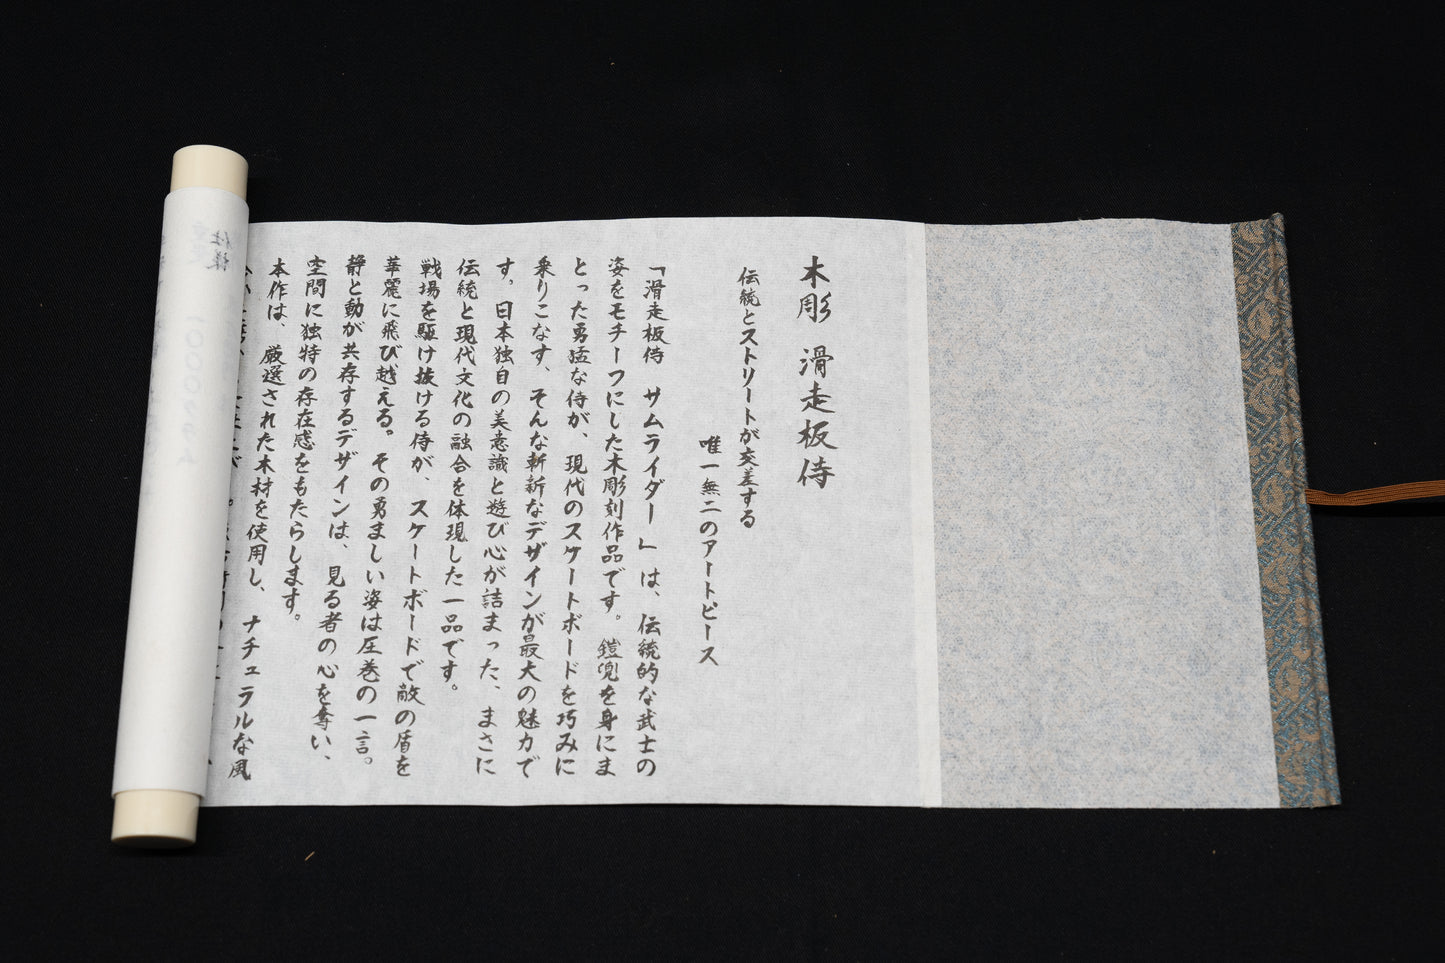 木彫 滑走板侍
伝統とストリートが交差する
唯一無二のアートピース
「滑走板侍 サムライダー」は、伝統的な武士の
姿をモチーフにした木彫刻作品です。鎧兜を身にま
とった勇猛な侍が、現代のスケートボードを巧みに
乗りこなす、そんな斬新なデザインが最大の魅力で
す。日本独自の美意識と遊び心が詰まった、まさに
伝統と現代文化の融合を体現した一品です。
戦場を駆け抜ける侍が、スケートボードで敵の盾を
華麗に飛び越える。その勇ましい姿は圧巻の一言。
静と動が共存するデザインは、見る者の心を奪い、
空間に独特の存在感をもたらします。
本作は、厳選された木材を使用し、ナチュラルな風
仕様